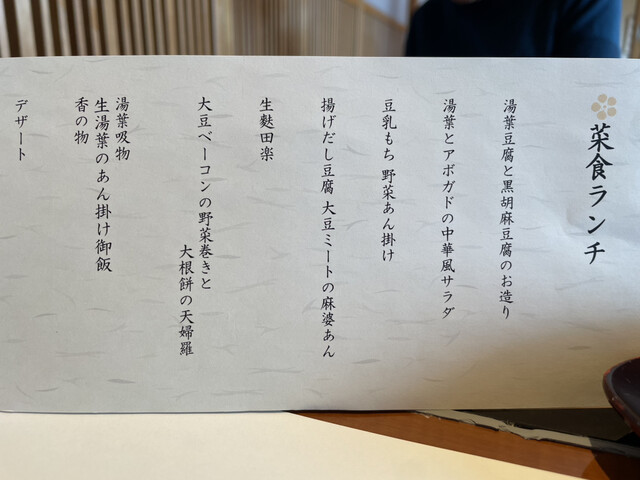 菜食ランチ
湯葉豆腐と黒胡麻豆腐のお造り
湯葉とアボガドの中華風サラダ
豆乳もち 野菜あん掛け
揚げだし豆腐 大豆ミートの麻婆あん
生麩田楽
大豆ベーコンの野菜巻きと
大根餅の天婦羅
湯葉吸物
生湯葉のあん掛け御飯
香の物
デザート